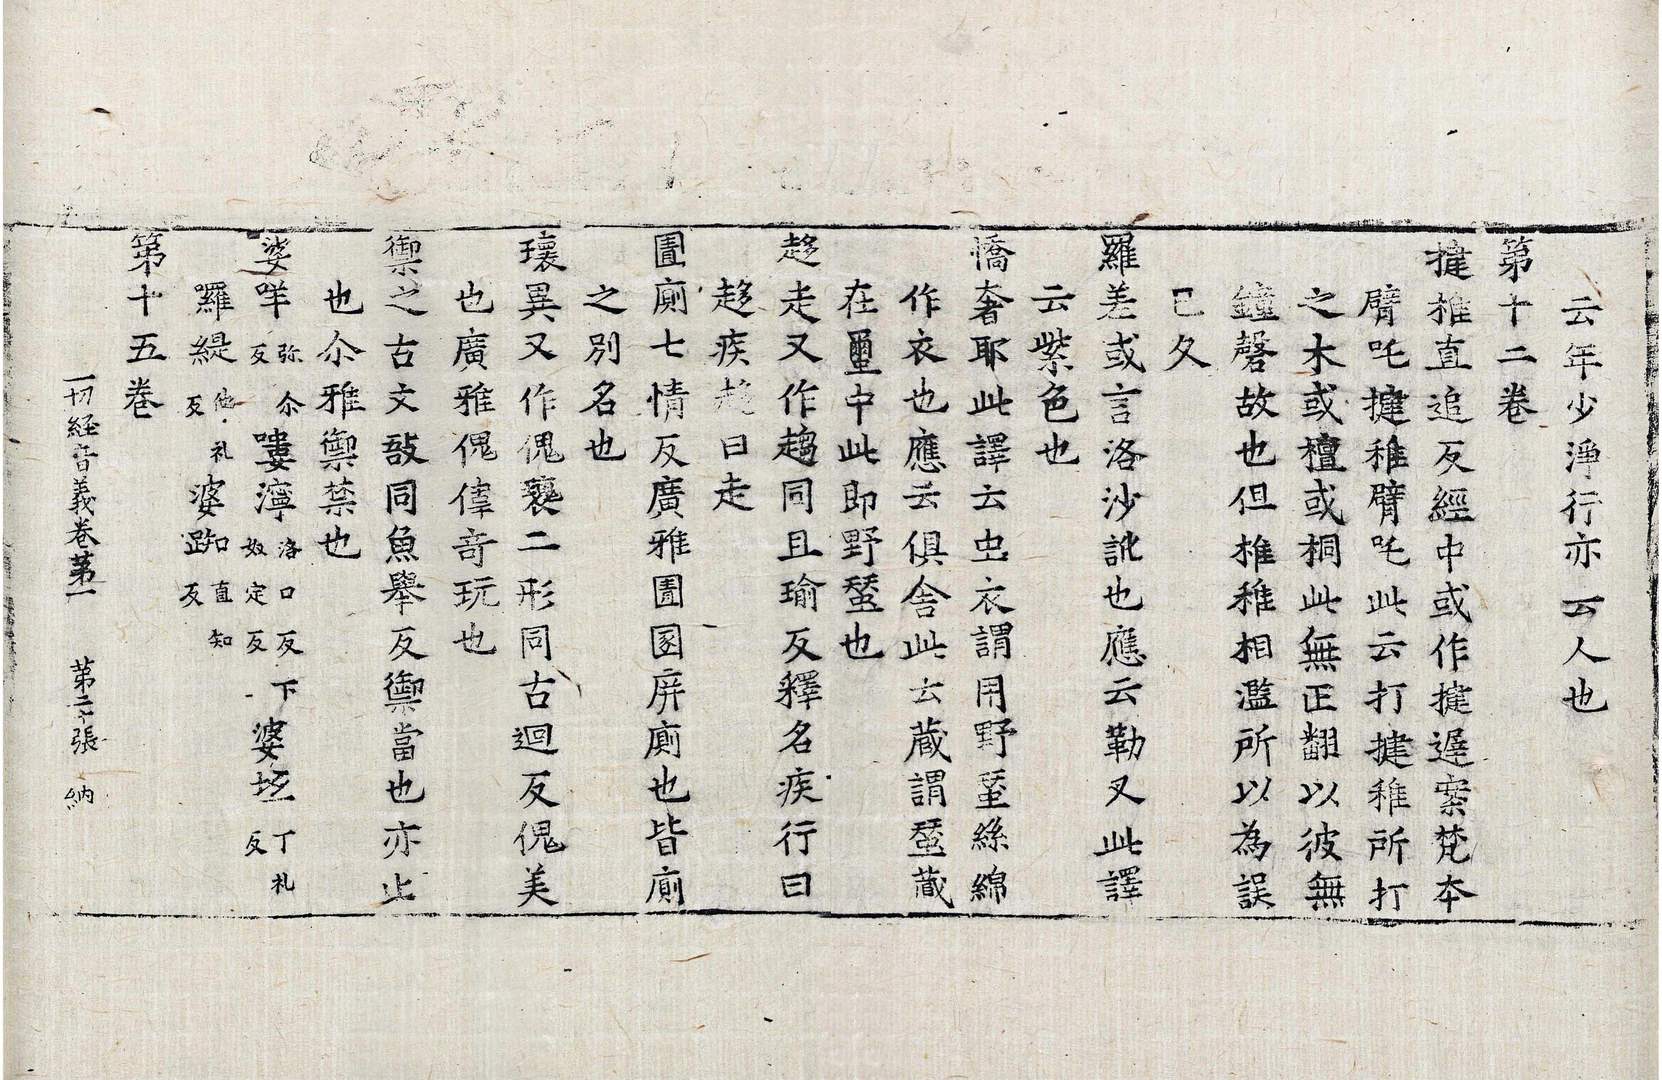 云年少淨行亦云人也
第十二卷
揵椎直追反經中或作揵遲案梵本
臂吒揵稚臂吒此云打揵稚所打
之木或檀或桐此無正翻以彼無
鐘磬故也但椎稚相濫所以為誤
已久
羅差或言洛沙訛也應云勒叉此譯
云紫色也
憍奢耶此譯云虫衣謂用野蚕絲綿
作衣也應云俱舍此云藏謂蚕藏
在蠒中此即野蚕也
趍走又作趨同且瑜反釋名疾行曰
趍疾趍曰走
圊廁七情反廣雅圊圂屏廁也皆廁
之別名也
瓌異又作傀褢二形同古迴反傀美
也廣雅傀偉奇玩也
禦之古文敔同魚舉反禦當也亦止
也尒雅禦禁也
婆咩弥尒反嘍濘洛口反下奴定反婆坘丁礼反
囉緹他礼反婆𨁔口直知反
第十五卷
一切經音義卷苐一 苐二十張 納